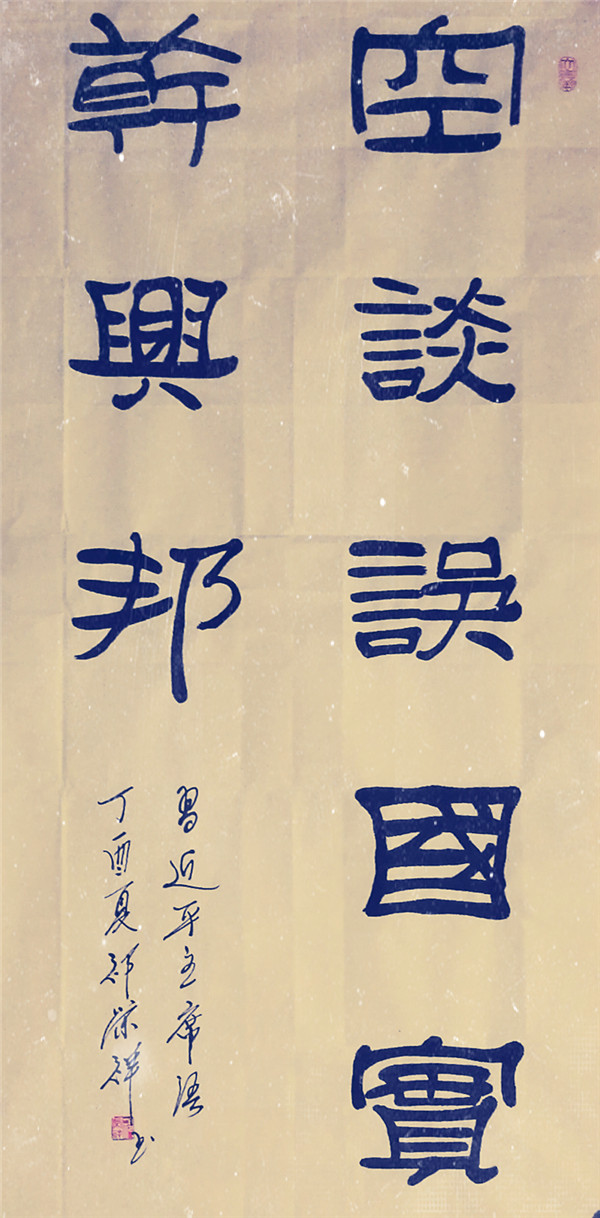 空談誤國實
幹興邦
習近平主席语
丁酉夏祁荣祥书